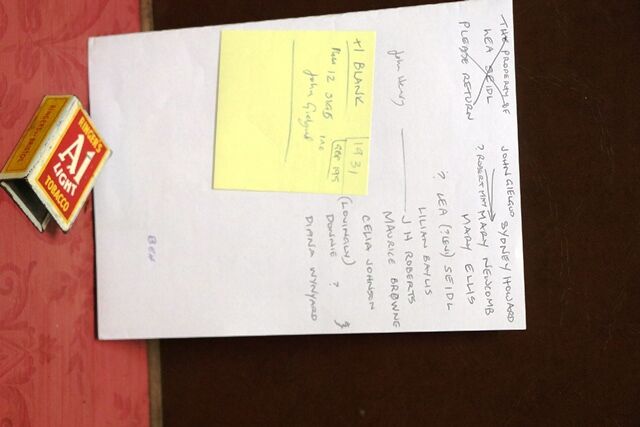 THE PROPERTY OF
LEA SEIDL
PLEASE RETURN
JOHN GIELGUD SYDNEY HOWARD
? ROBERT MARY NEWCOMB
MARY ELLIS
? LEA (?LEN) SEIDL
LILIAN BAYLIS
J H ROBERTS
MAURICE BROWNE
CELIA JOHNSON
(LOVINGLY) DONNIE ?
DIANA WYNYARD
+1 BLANK 1931
12 SIGS INC
John Gielgud
BEN
RINGER'S
A1
LIGHT
TOBACCO